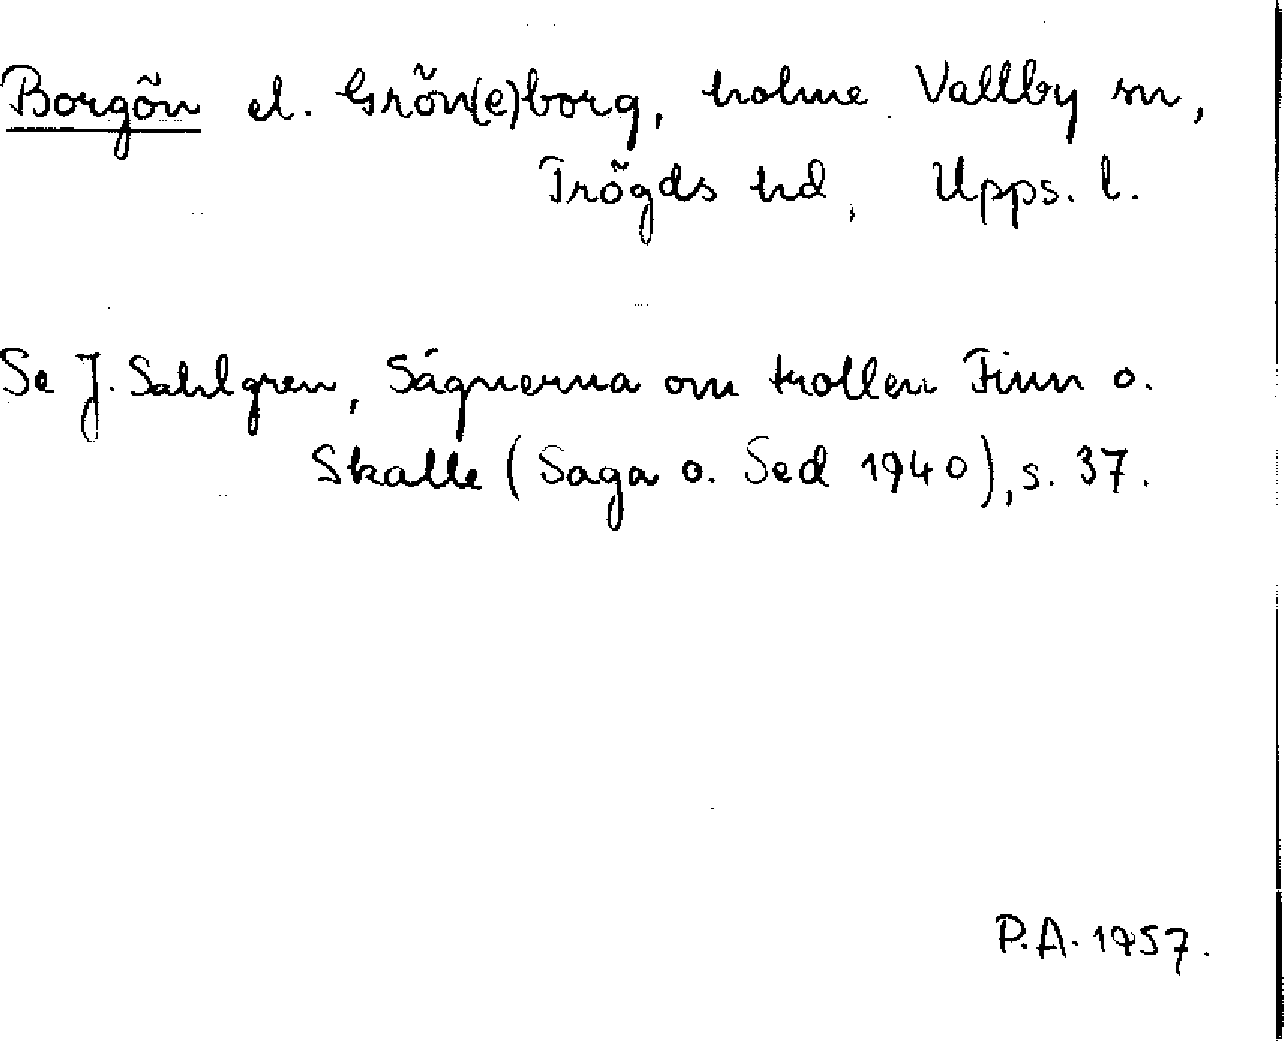 Borgön el. Grön(e)borg, holme Vallby sn,
Trögds hd, Upps. l.
Se J. Sahlgren, Sägnerna om trollen Finn o.
Skalle (Saga o. Sed 1940), s. 37.
P.A. 1957.